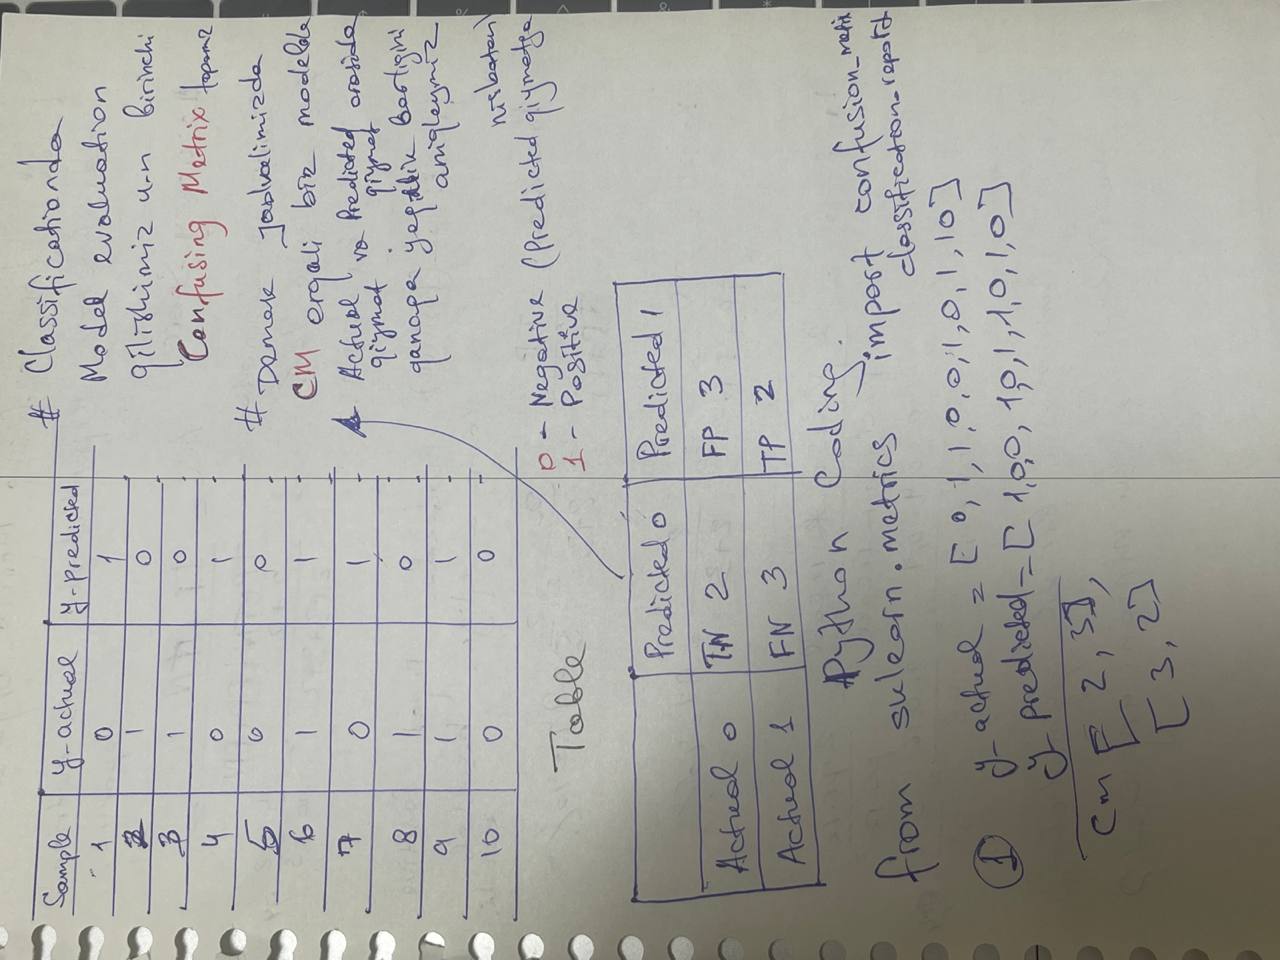 Sample y-actual y-predicted
1 0 1
2 1 0
3 1 0
4 0 1
5 0 0
6 1 1
7 0 1
8 1 0
9 1 1
10 0 0
# Classificationda
Model evaluation
qilishimiz u-n birinchi
Confusing Metrix topamiz
# Demak jadvalimizda
CM orqali biz modelda
Actual va Predicted orasida
qiymat qiymat
qanaqa yaqinlik borligini
aniqlaymiz
nisbatan
0 - Negative (Predicted qiymatga
1 - Positive
Table
Predicted 0 Predicted 1
Actual 0 TN 2 FP 3
Actual 1 FN 3 TP 2
Python Coding.
from sklearn.metrics import confusion_matrix
classification_report
1 y-actual = [0, 1, 1, 0, 0, 1, 0, 1, 10]
y-predicted = [1, 0, 0, 1, 0, 1, 1, 0, 1, 0]
Cm [[2, 3],
[3, 2]